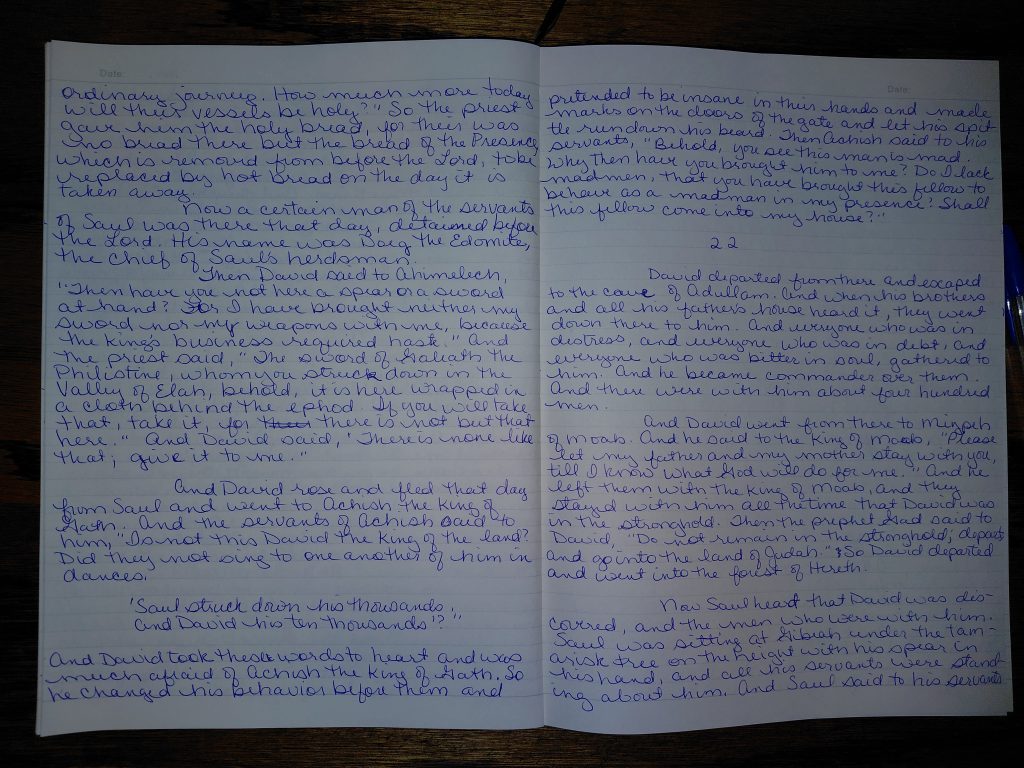 Date
ordinary journey. How much more today
will their vessels be holy?" So the priest
gave him the holy bread, for their was
no bread there but the bread of the Presence
which is removed from before the Lord, to be
replaced by hot bread on the day it is
taken away.
Now a certain man of the servants
of Saul was there that day, detained before
the Lord. His name was Doeg the Edomite,
the chief of Saul's herdsman.
Then David said to Ahimelech,
"Then have you not here a spear or a sword
at hand? For I have brought neither my
sword nor my weapons with me, because
the king's business required haste." And
the priest said, "The sword of Goliath the
Philistine, whom you struck down in the
Valley of Elah, behold, it is here wrapped in
a cloth behind the ephod. If you will take
that, take it, for there is not but that
here." And David said, 'There is none like
that; give it to me."
And David rose and fled that day
from Saul and went to Achish the king of
Gath. And the servants of Achish said to
him, "Is not this David the King of the land?
Did they not sing to one another of him in
dances,
'Saul struck down his thousands,
and David his ten thousands'?"
And David took these words to heart and was
much afraid of Achish the king of Gath. So
he changed his behavior before them and
Date
pretended to be insane in their hands and made
marks on the doors of the gate and let his spit
tle run down his beard. Then Achish said to his
servants, "Behold, you see this man is mad.
Why then have you brought him to me? Do I lack
madmen, that you have brought this fellow to
behave as a madman in my presence? Shall
this fellow come into my house?"
22
David departed from there and escaped
to the cave of Adullam. And when his brothers
and all his father's house heard it, they went
down there to him. And everyone who was in
distress, and everyone who was in debt, and
everyone who was bitter in soul, gathered to
him. And he became commander over them.
And there were with him about four hundred
men.
And David went from there to Mizpeh
of Moab. And he said to the King of Moab, "Please
let my father and my mother stay with you,
till I know what God will do for me." And he
left them with the king of Moab, and they
stayed with him all the time that David was
in the stronghold. Then the prophet Gad said to
David, "Do not remain in the stronghold; depart,
and go into the land of Judah." So David departed
and went into the forest of Hereth.
Now Saul heard that David was dis-
covered, and the men who were with him.
Saul was sitting at Gibeah under the tam-
arisk tree on the height with his spear in
his hand, and all his servants were stand
ing about him. And Saul said to his servants